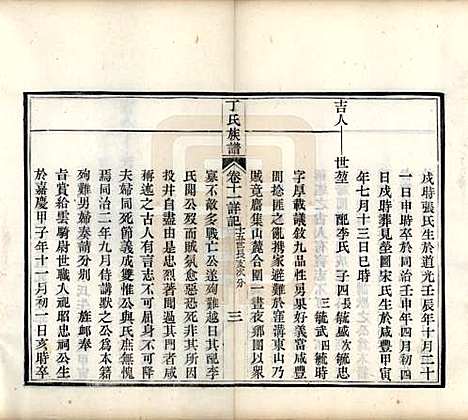 戌時張氏生於道光壬辰年十月二十
一日申時卒於同治壬申年四月初四
日戌時葬見塋圖宋氏生於咸豐甲寅
年七月十三日巳時
吉人——世堃
配李氏 子四長毓盛次毓忠
三毓武四毓時
字厚載議敘九品性男果好義當咸豐
間捻匪之亂携家避難於窪溝東山乃
賊竟麕集山麓合圍一晝夜鄉團以眾
丁氏族譜
卷十一詳記
十五世長支次分
三
寡不敵多戰亡公遂殉難越日其配李
氏開公歿而賊氛愈惡誓不辱身即
投井自盡由是其所由來非
稱述之古人有言志不可屈身不可辱
夫婦同死節義成雙惟公與氏庶無愧
焉同治二年九月侍講默之公為本籍
殉難男婦奏請分別 旌卹奉
旨賞給雲騎尉世職入祀昭忠祠公生
於嘉慶甲子年十一月初一日亥時卒